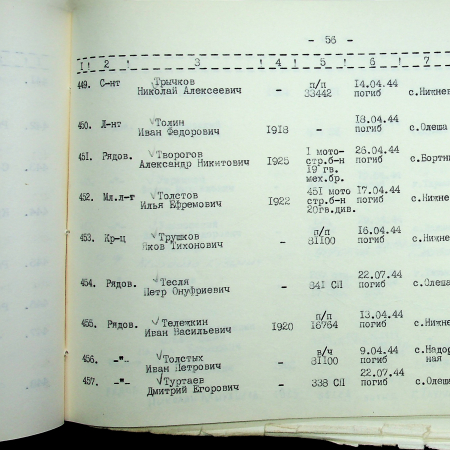 - 56 -
1 ! 2 ! 3 ! 4 ! 5 ! 6 ! 7
449. С-нт Трычков Николай Алексеевич - п/п 33442 14.04.44 погиб с.Нижне
450. Л-нт Толин Иван Федорович 1918 - 18.04.44 погиб с.Олеша
451. Рядов. Творогов Александр Никитович 1925 1 мото-стр.б-н 19 гв. мех.бр. 26.04.44 погиб с.Бортни
452. Мл.л-т Толстов Илья Ефремович 1922 451 мото стр.б-н 20гв.див. 17.04.44 погиб с.Нижне
453. Кр-ц Трушков Яков Тихонович - п/п 81100 16.04.44 погиб с.Нижне
454. Рядов. Тесля Петр Онуфриевич - 841 СП 22.07.44 погиб с.Олеша
455. Рядов. Тележкин Иван Васильевич 1920 п/п 16764 13.04.44 погиб с.Нижне
456. -"- Толстых Иван Петрович - в/ч 81100 9.04.44 погиб с.Надор ная
457. -"- Туртаев Дмитрий Егорович - 338 СП 22.07.44 погиб с.Олеша